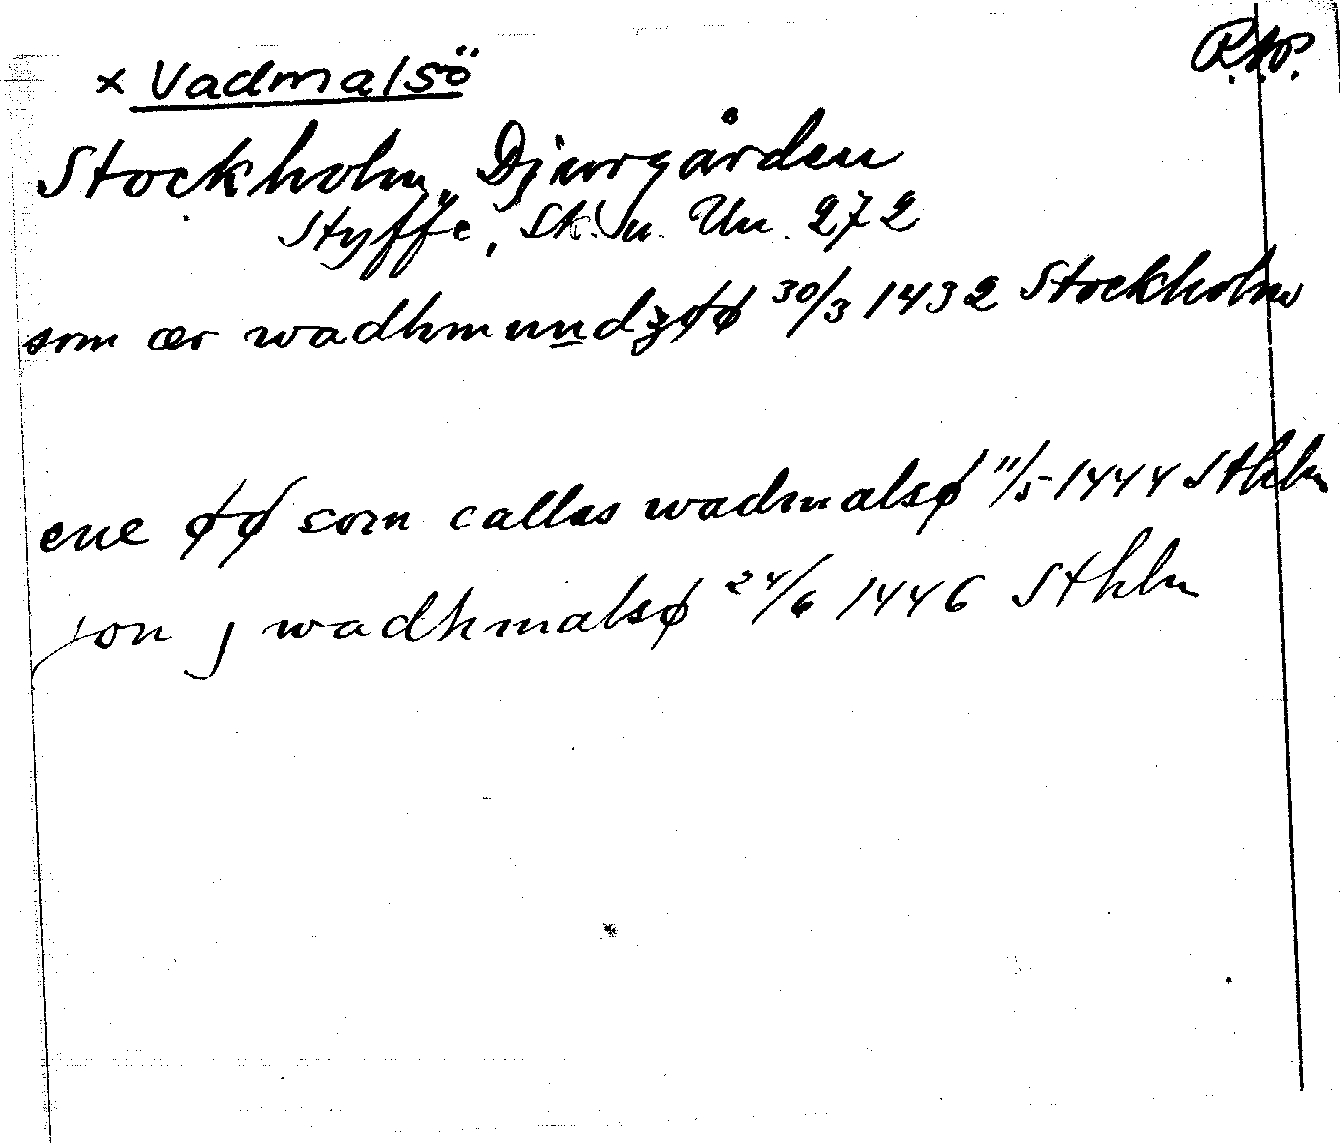 R.A.P.
× Vadmalsö
Stockholm, Djurgården
Styffe, Sk. u. Un. 272
som ær wadhmundzøø 30/3 1432 Stockholm
ene øø som callas wadmalsø 11/5 1444 Sthlm
jon j wadhmalsø 24/6 1446 Sthlm